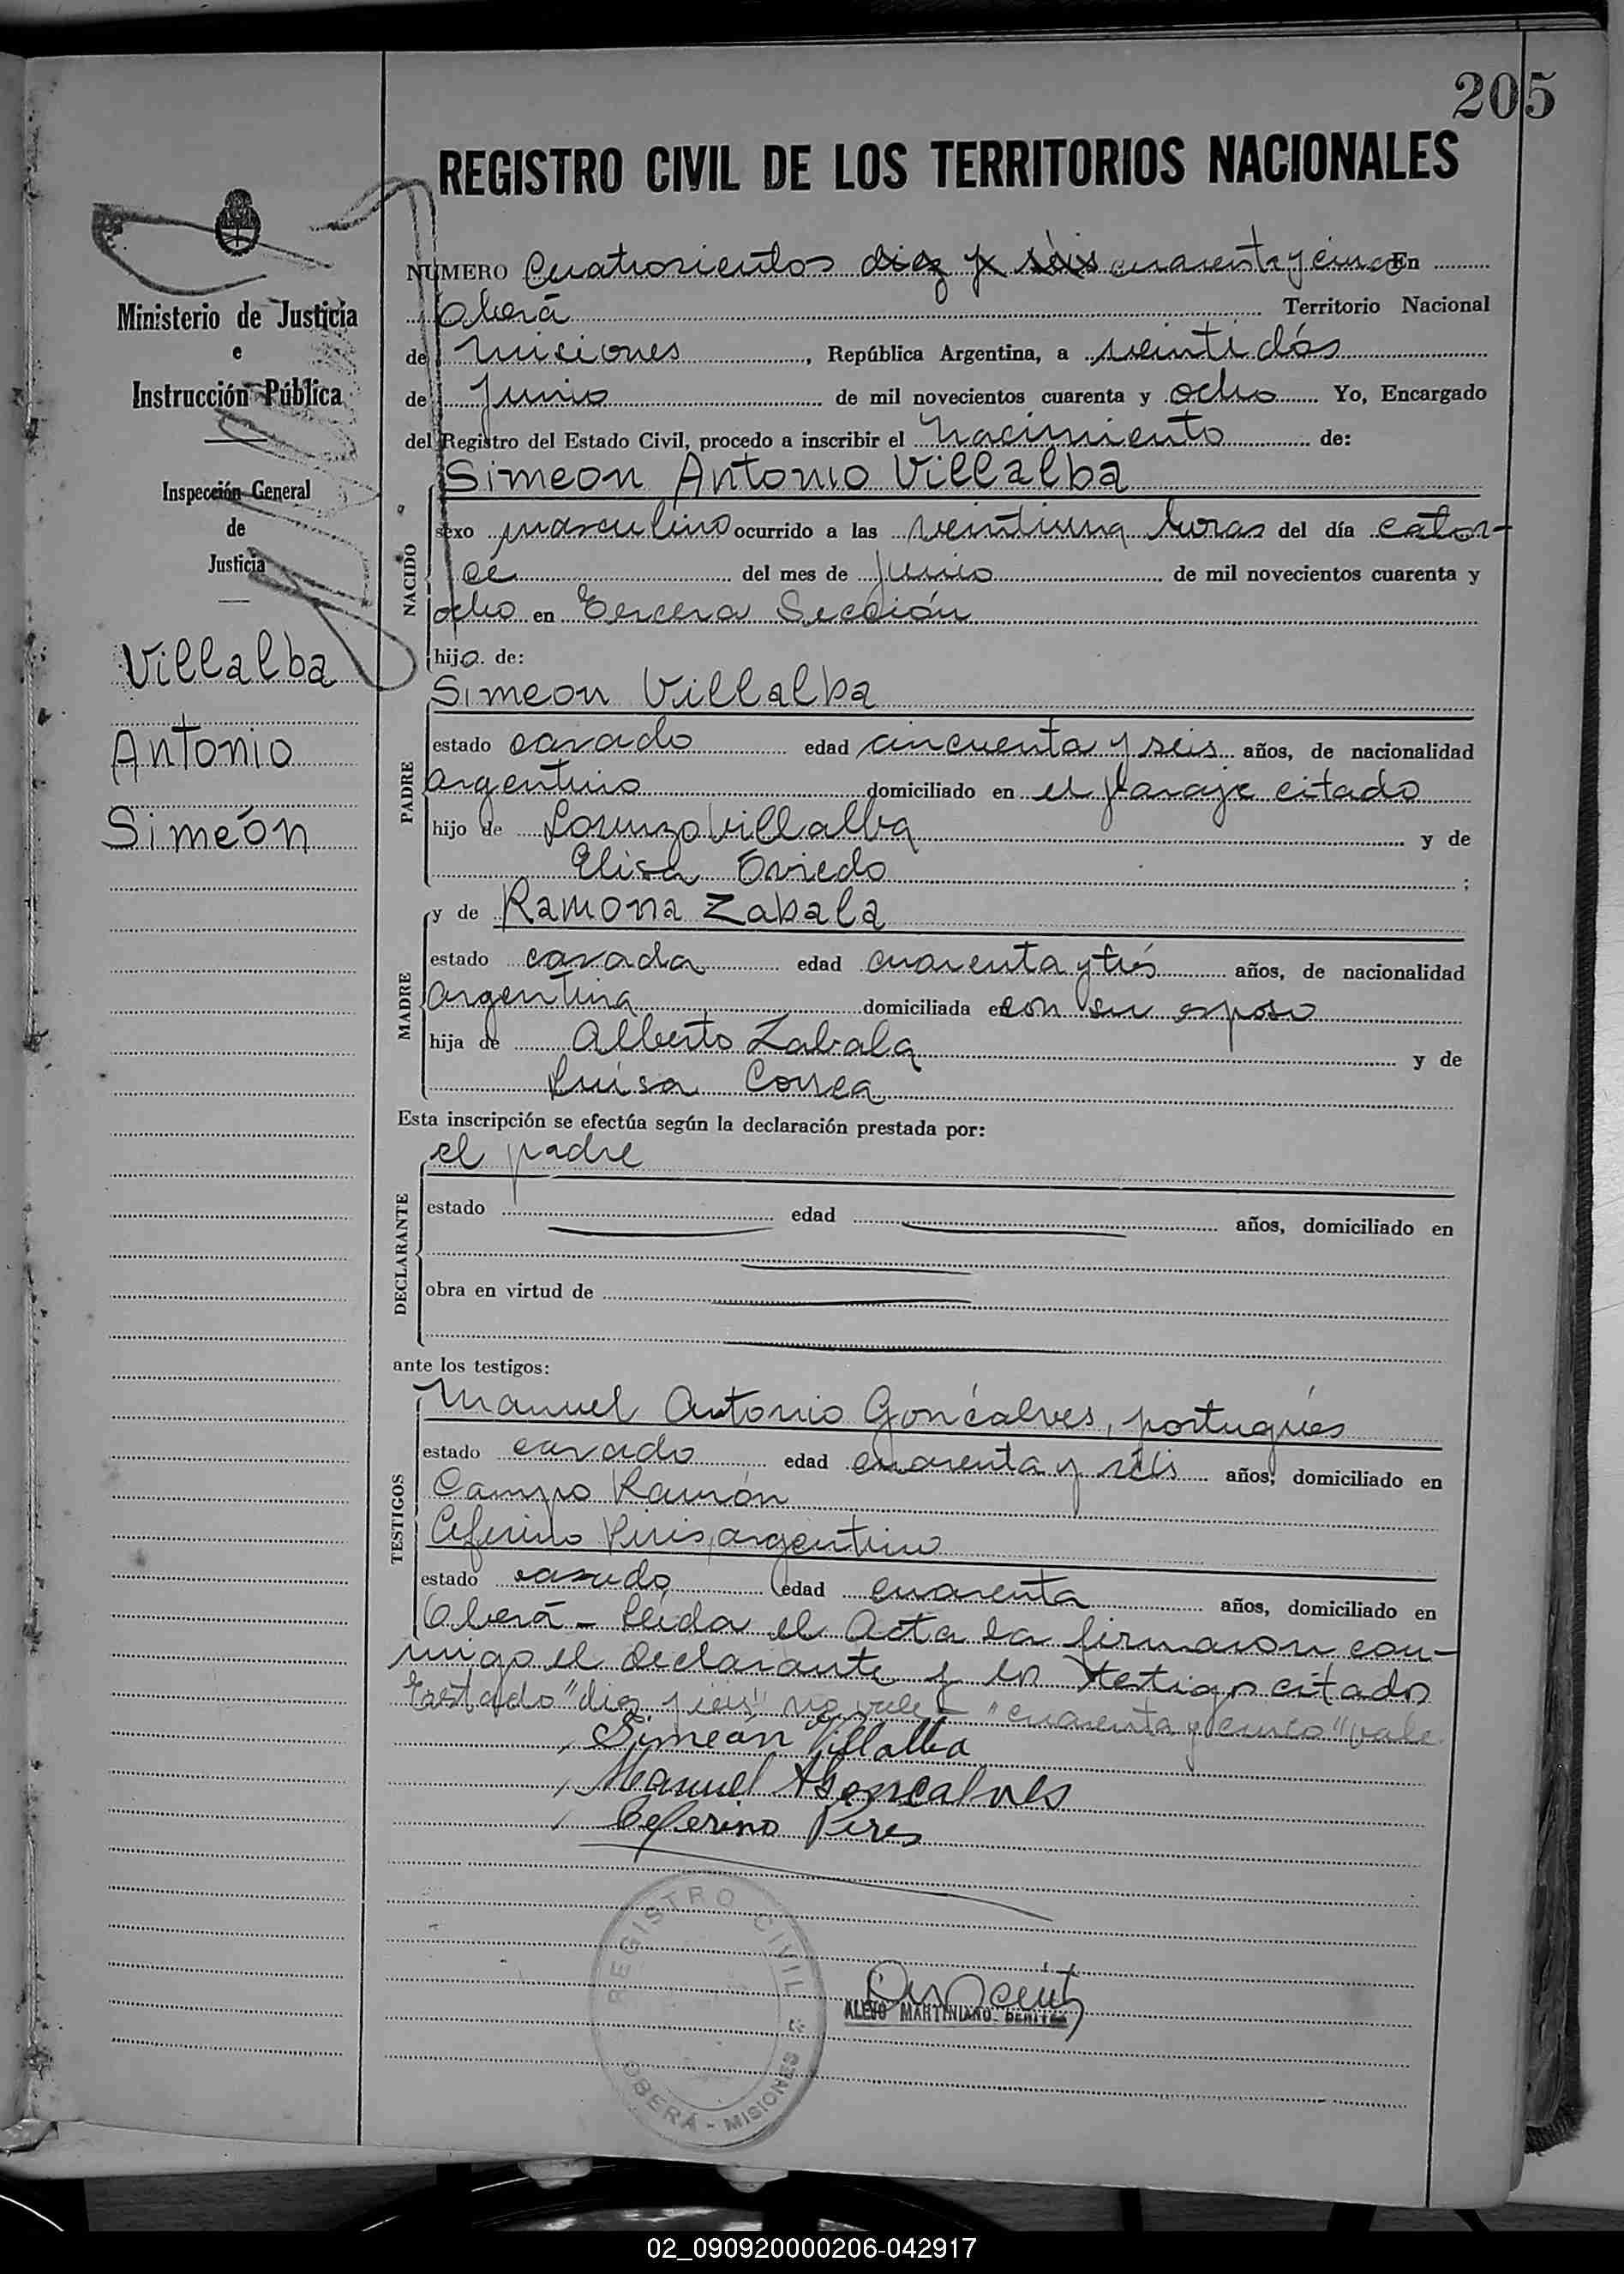 205
REGISTRO CIVIL DE LOS TERRITORIOS NACIONALES
NUMERO Cuatrosientos diez y seis cuarenta y cinco En
Oberá Territorio Nacional
de Misiones, República Argentina, a veintidós
de Junio de mil novecientos cuarenta y ocho Yo, Encargado
del Registro del Estado Civil, procedo a inscribir el Nacimiento de:
Simeon Antonio Villalba
sexo masculino ocurrido a las veintiuna horas del día cator-
ce del mes de junio de mil novecientos cuarenta y
ocho en Tercera Sección
hijo de:
Simeon Villalba
estado casado edad cincuenta y seis años, de nacionalidad
argentino domiciliado en el paraje citado
hijo de Lorenzo Villalba y de
Elisa Oviedo ;
y de Ramona Zabala
estado casada edad cuarenta y trés años, de nacionalidad
argentina domiciliada en con su esposo
hija de Alberto Zabala y de
Luisa Correa
Esta inscripción se efectúa según la declaración prestada por:
el padre
estado edad años, domiciliado en
obra en virtud de
ante los testigos:
Manuel Antonio Goncalves, portugués
estado casado edad cuarenta y seis años, domiciliado en
Campo Ramón
Ceferino Piris, argentino
estado casado edad cuarenta años, domiciliado en
Oberá - Leida el Acta la firmaron con-
migo el declarante y los testigos citados
Testado "diez y seis" no vale - "cuarenta y cinco" vale
Simeón Villalba
Manuel A Goncalves
Ceferino Pires
NACIDO
PADRE
MADRE
DECLARANTE
TESTIGOS
Ministerio de Justicia
e
Instrucción Pública
Inspección General
de
Justicia
Villalba
Antonio
Simeón
REGISTRO CIVIL
OBERÁ - MISIONES
ALEJO MARTINIANO BENITEZ
02_090920000206-042917